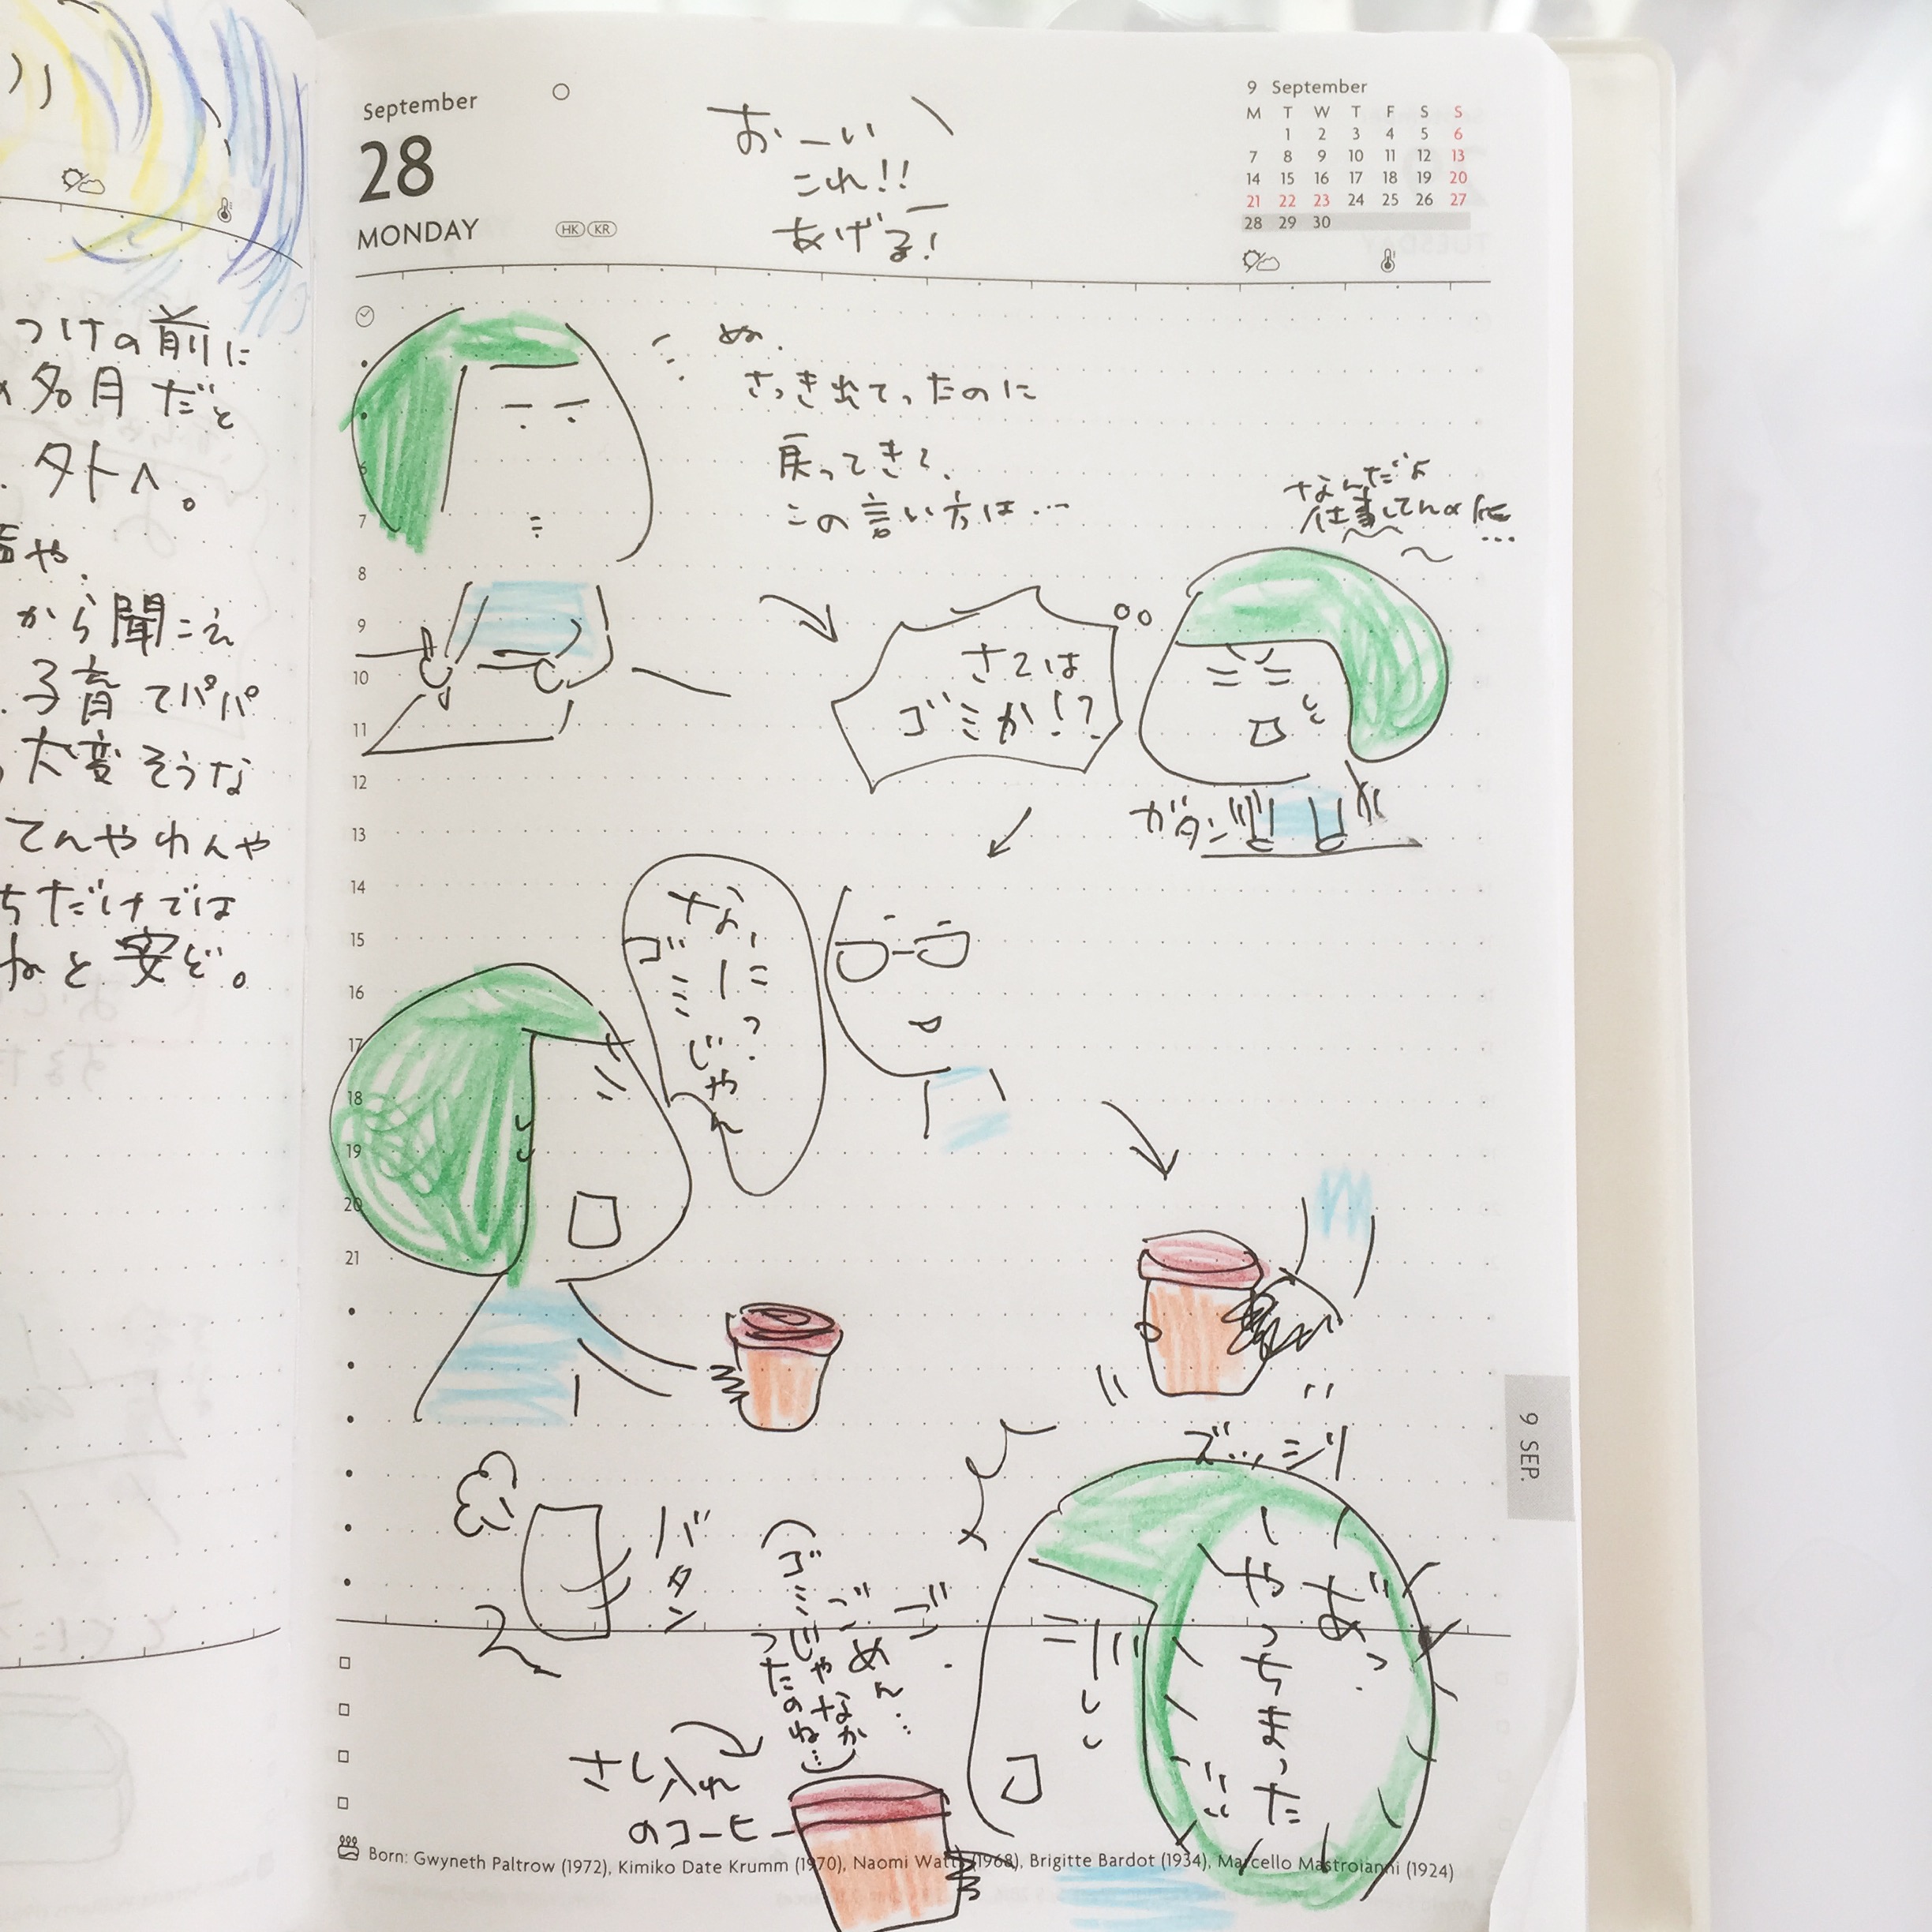 つけの前に
名月だと
外へ。
や.
から聞こえ
子育てパパ
大変そうな
てんやわんや
ちだけでは
ねと安ど。
September
28
MONDAY
HK KR
おーい
これ!!
あげるー!
9 September
M T W T F S S
1 2 3 4 5 6
7 8 9 10 11 12 13
14 15 16 17 18 19 20
21 22 23 24 25 26 27
28 29 30
ぬ.
さっき出てったのに
戻ってきて、
この言い方は…
なんだよ
仕事してんのに…
さては
ゴミか!?
ガタン
なに?
ゴミじゃん
7
8
9
10
11
12
13
14
15
16
17
18
19
20
21
ズ…シリ
バタン
あ"っ.
しやっちまった
ごごめん…
(ゴミじゃなかったのね…)
さし入れ
のコーヒー
9 SEP.
Born: Gwyneth Paltrow (1972), Kimiko Date Krumm (1970), Naomi Watts (1968), Brigitte Bardot (1934), Marcello Mastroianni (1924)